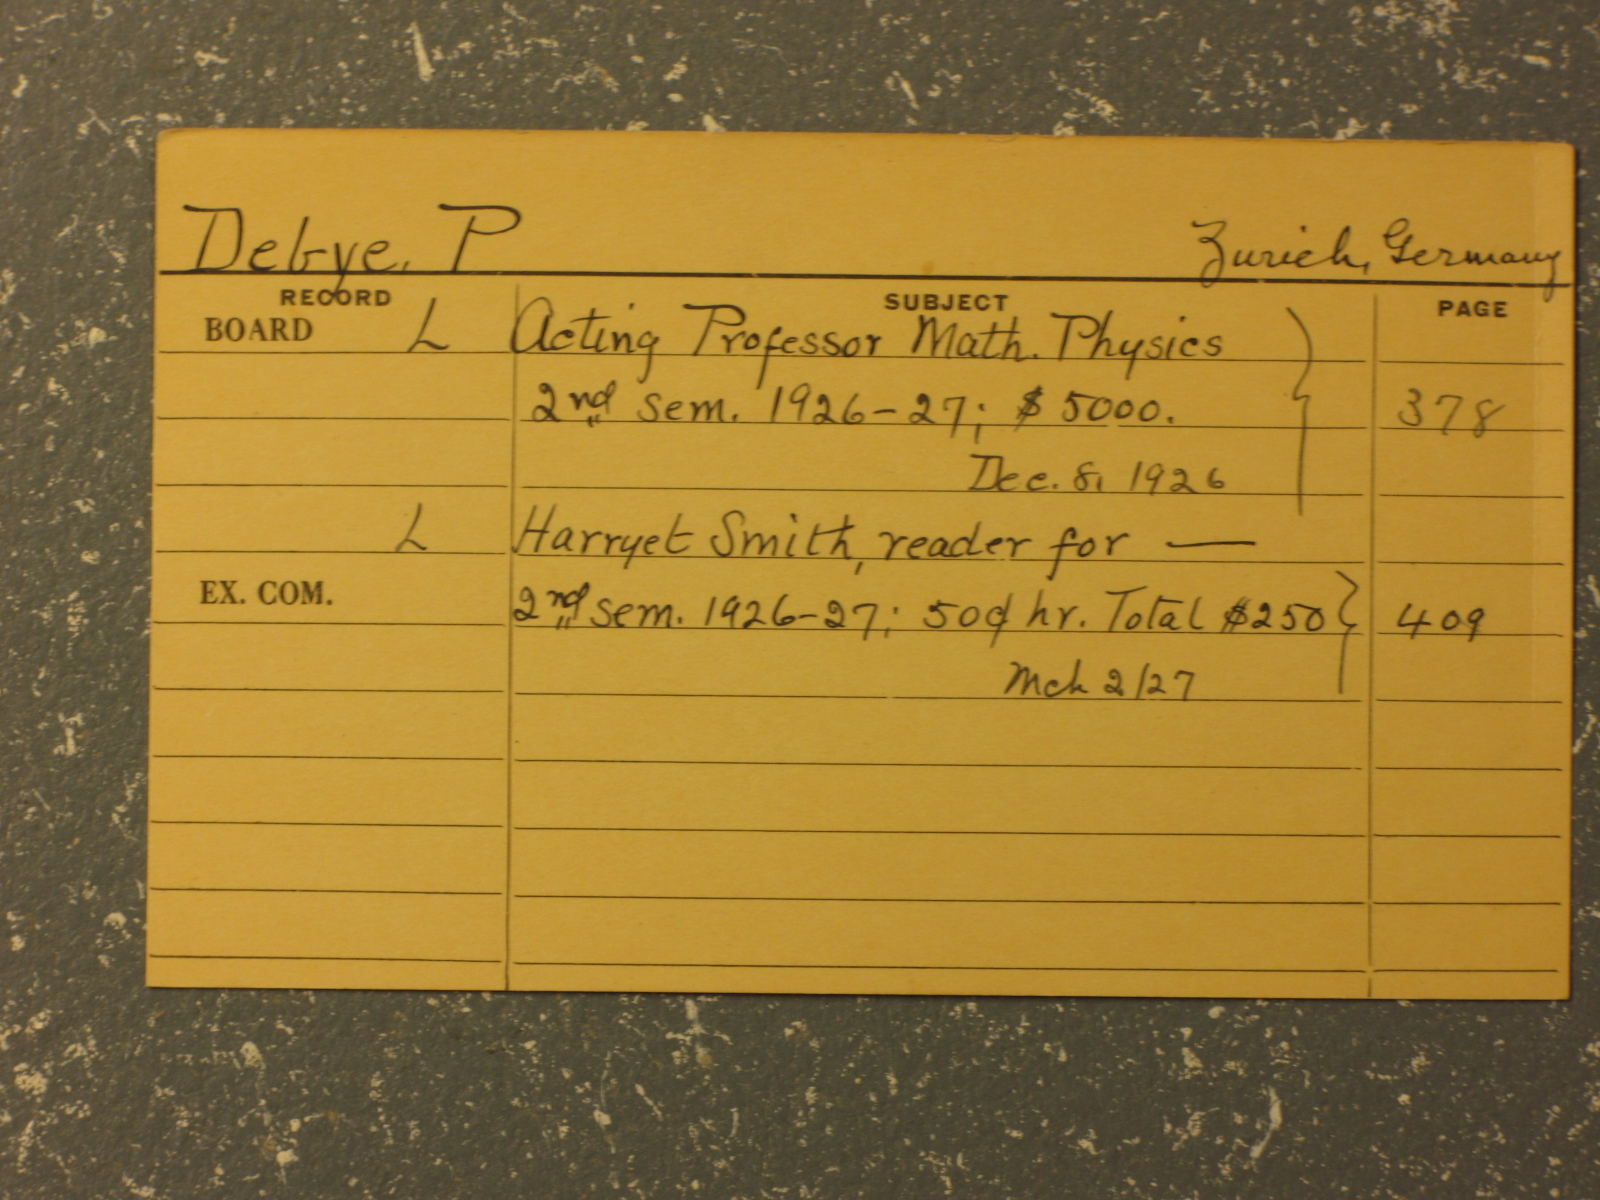 Debye, P Zurich, Germany
RECORD SUBJECT PAGE
BOARD L Acting Professor Math. Physics
2nd sem. 1926-27; $5000. 378
Dec. 8, 1926
L Harryet Smith, reader for —
EX. COM. 2nd sem. 1926-27; 50¢ hr. Total $250 409
Mch 2/27